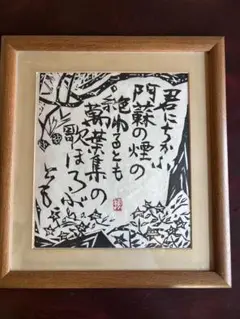 君にちかふ
阿蘇の煙の
絶ゆるとも
萬葉集の
歌ほろぶ
とも